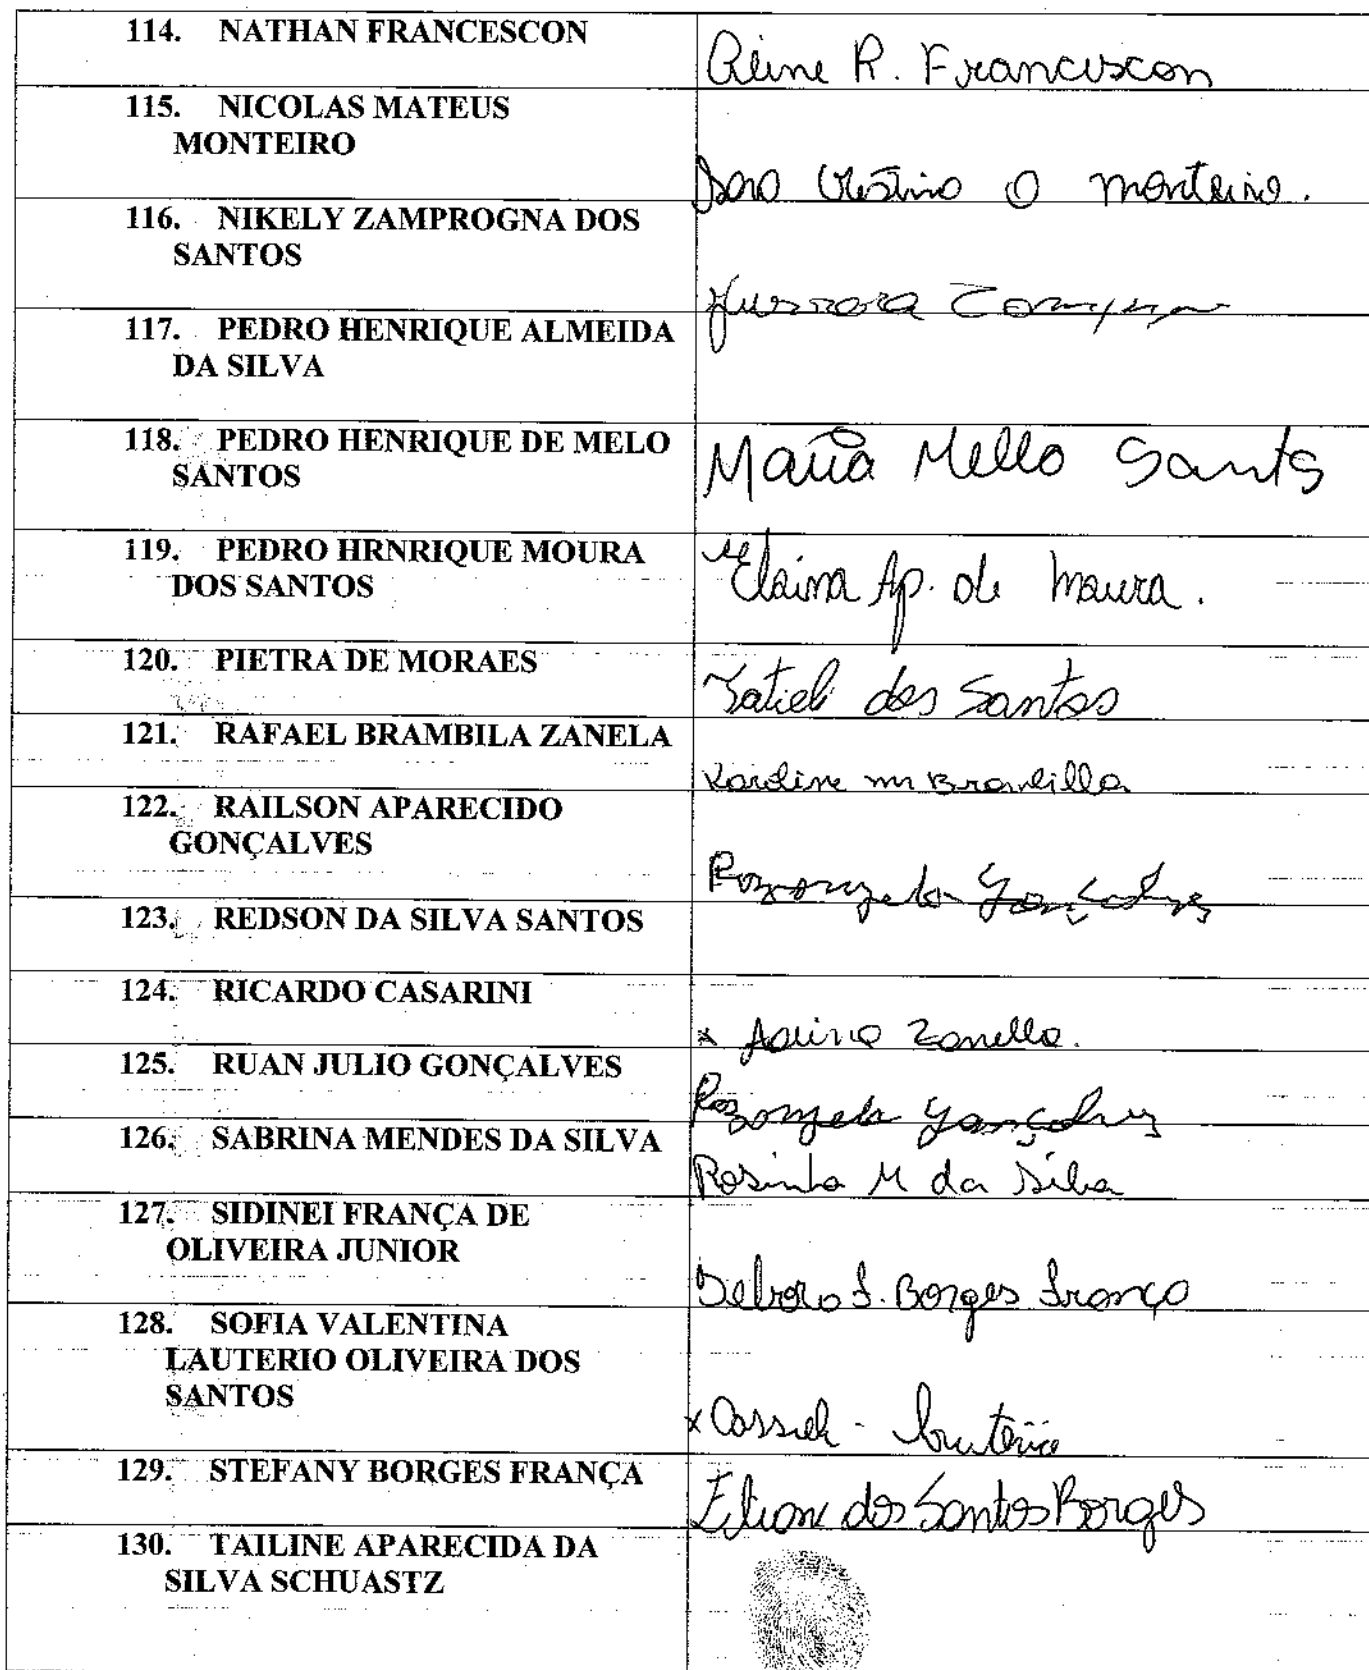 114. NATHAN FRANCESCON
Aline R. Franciscon
115. NICOLAS MATEUS
MONTEIRO
O monteiro.
116. NIKELY ZAMPROGNA DOS
SANTOS
117. PEDRO HENRIQUE ALMEIDA
DA SILVA
118. PEDRO HENRIQUE DE MELO
SANTOS
Maria Mello Sants
119. PEDRO HRNRIQUE MOURA
DOS SANTOS
Elaina Ap. de Moura.
120. PIETRA DE MORAES
Tatieli dos Santos
121. RAFAEL BRAMBILA ZANELA
Karoline m Brambilla
122. RAILSON APARECIDO
GONÇALVES
Rozangela Gonçalves
123. REDSON DA SILVA SANTOS
124. RICARDO CASARINI
x Zanella.
125. RUAN JULIO GONÇALVES
Rozangela Gonçalves
126. SABRINA MENDES DA SILVA
Rosinha M da Silva
127. SIDINEI FRANÇA DE
OLIVEIRA JUNIOR
Borges França
128. SOFIA VALENTINA
LAUTERIO OLIVEIRA DOS
SANTOS
x
129. STEFANY BORGES FRANÇA
dos Santos Borges
130. TAILINE APARECIDA DA
SILVA SCHUASTZ